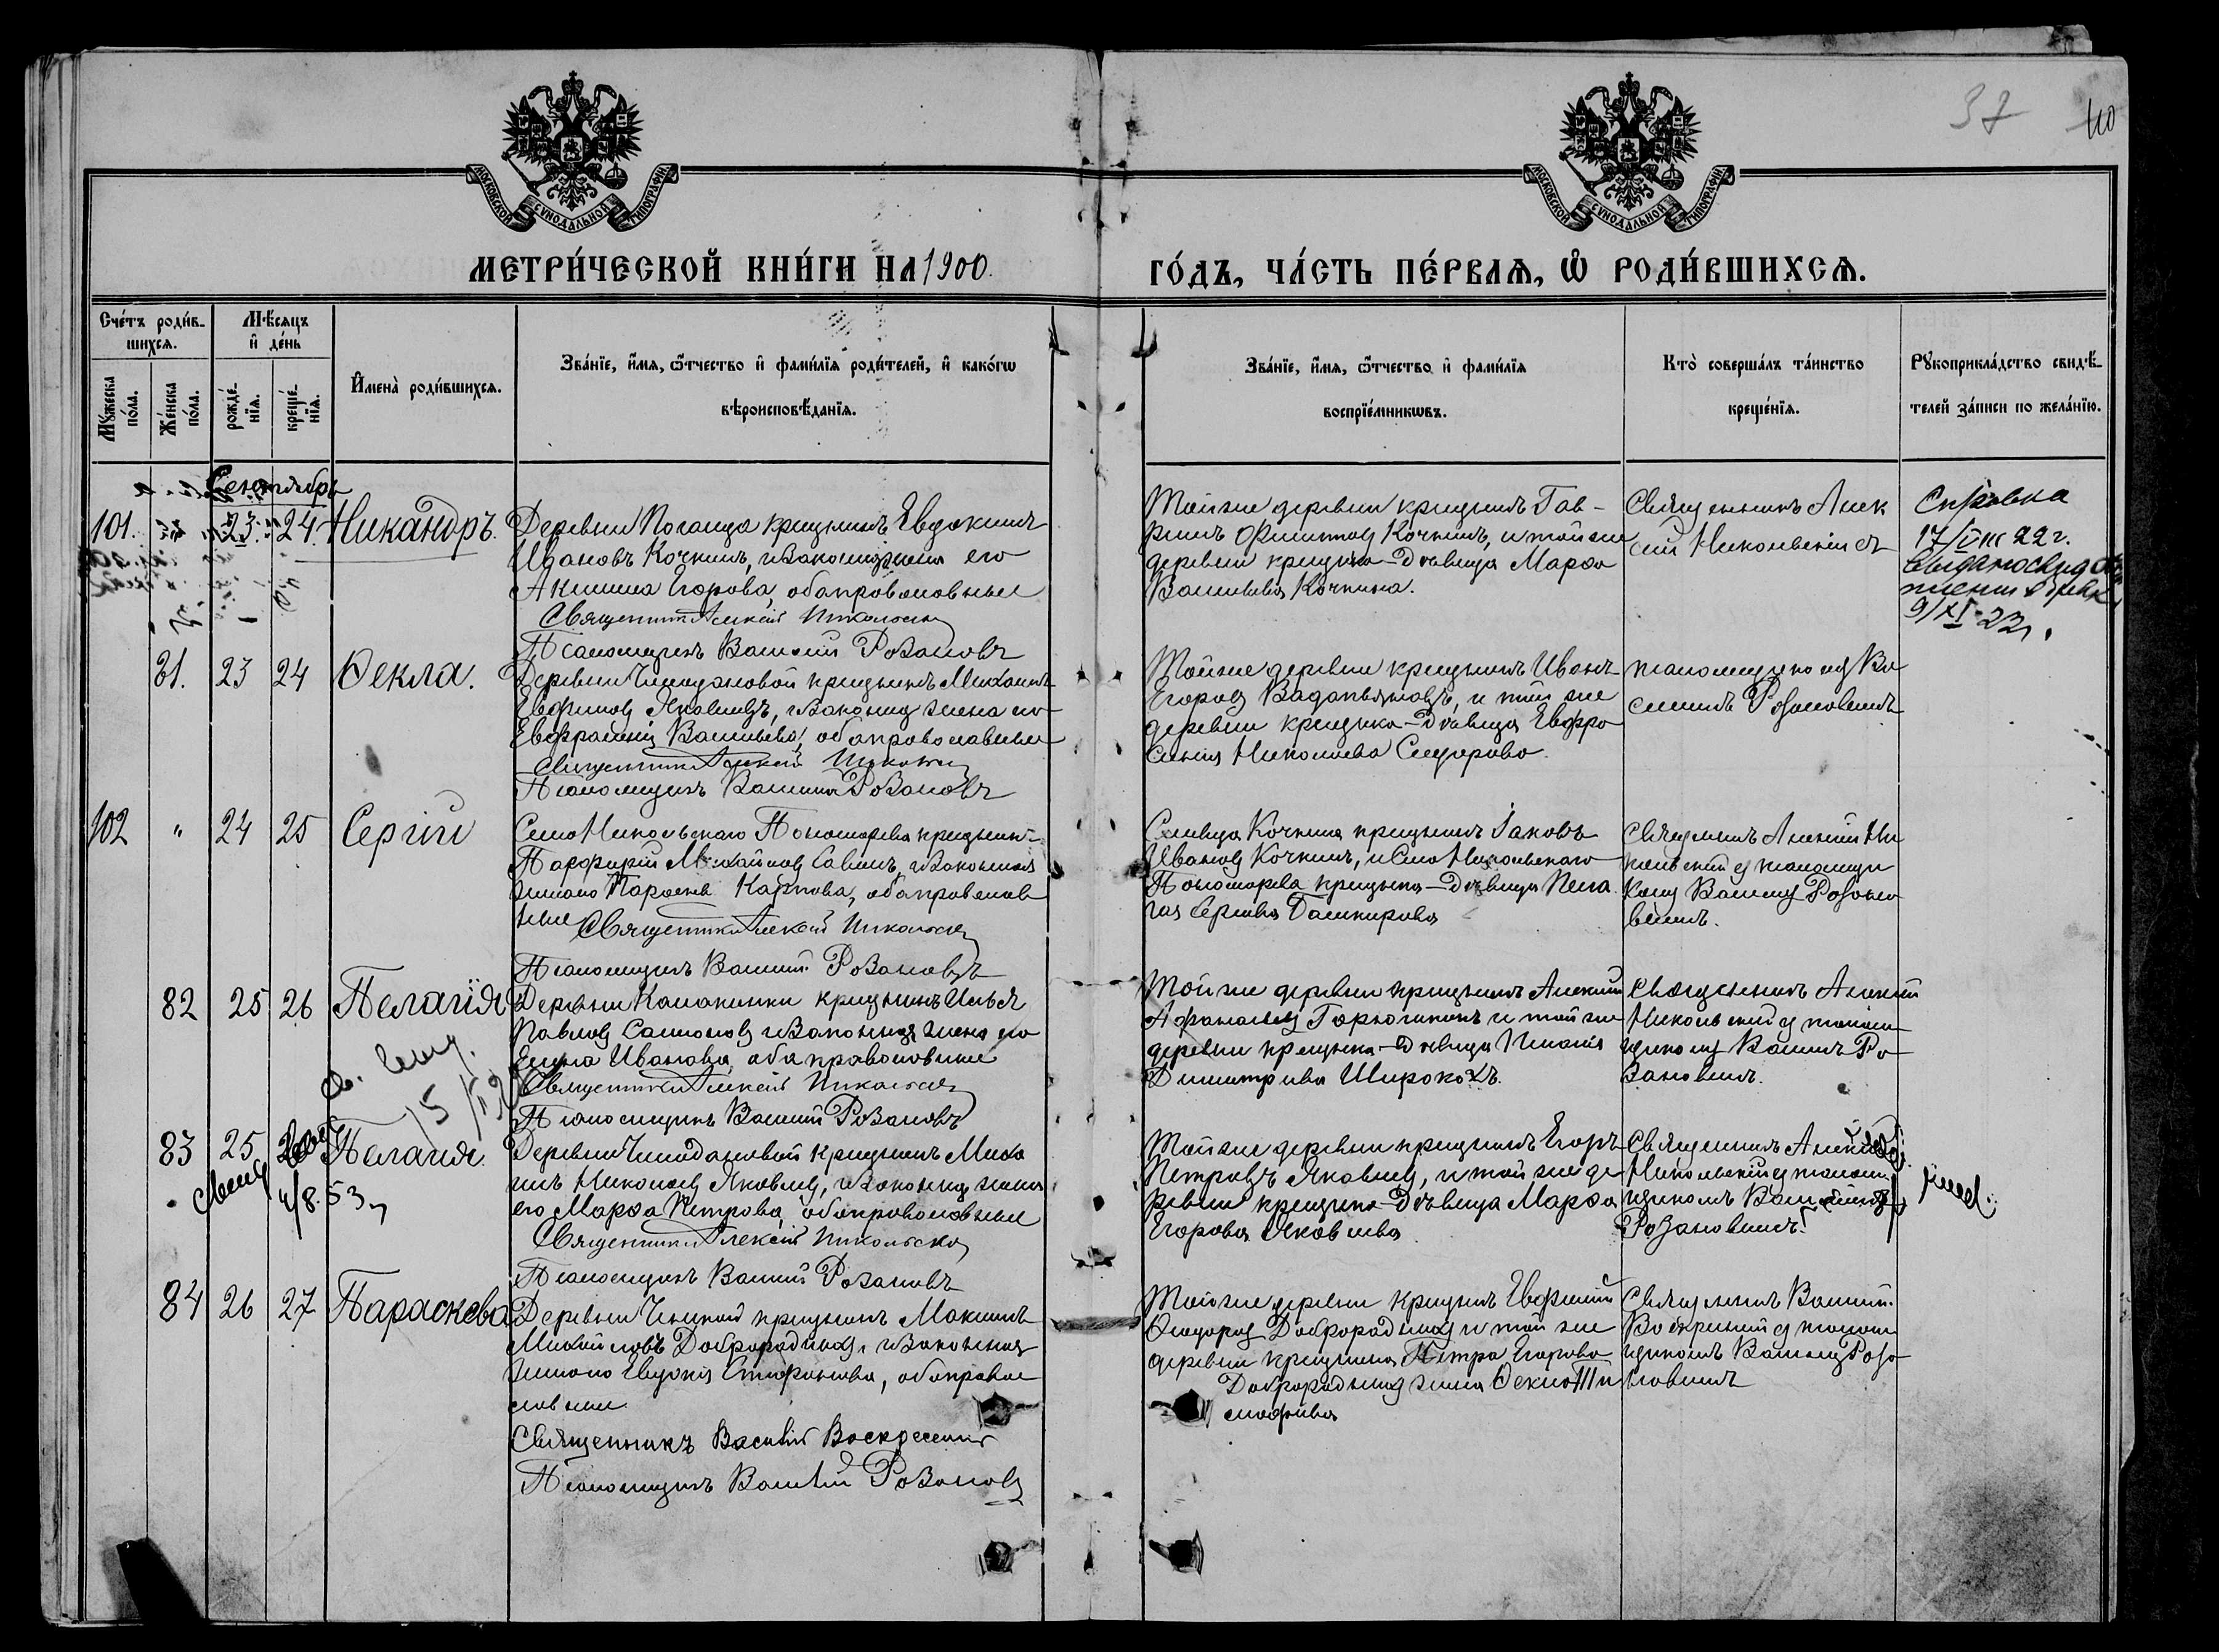 37
40
МОСКОВСКОЙ СѴНОДАЛЬНОЙ ТИПОГРАФІИ
МОСКОВСКОЙ СѴНОДАЛЬНОЙ ТИПОГРАФІИ
МЕТРИ́ЧЕСКОЙ КНИ́ГИ НА 1900.
ГО́ДЪ, ЧА́СТЬ ПЕ́РВАѦ, Ѡ҆ РОДИ́ВШИХСѦ.
Сче́тъ роди́в-
шихсѧ.
Мѣ́сѧцъ
и҆ де́нь
Мꙋ́жеска
по́ла.
Же́нска
по́ла.
рожде́-
нїѧ.
креще́-
нїѧ.
И҆мена̀ роди́вшихсѧ.
Зва́нїе, и҆́мѧ, ѻ҆́тчество и҆ фами́лїѧ роди́телей, и҆ како́гѡ
вѣроисповѣ́данїѧ.
Зва́нїе, и҆́мѧ, ѻ҆́тчество и҆ фами́лїѧ
воспрїе́мникѡвъ.
Кто̀ соверша́лъ та́инство
креще́нїѧ.
Рꙋкоприкла́дство свидѣ́-
телей за́писи по жела́нїю.
Сентябрь
101. 23. 24. Никандръ.
Деревни крщнинъ Евдокимъ
Ивановъ Кочкинъ, и законная жена его
Акилина Егорова, оба православные
Священникъ Алексій Никольскій
Псаломщикъ Василій Розановъ
Той же деревни крщнинъ Гав-
Кочкинъ, и той же
деревни крщнка - Дѣвица Марѳа
Васильева Кочкина.
Священникъ Алек
сій Никольскій съ
Справка
17/VIII 22 г.
9/XI-23 г.
81. 23 24 Ѳекла.
Деревни Чемодановой крщнинъ Михаилъ
Евфимовъ Яковлевъ, и законная жена его
Евфрасинія Васильева, оба православные
Священникъ Алексій Никольскій
Псаломщикъ Василій Розановъ
Той же деревни крщнинъ Иванъ
Егоровъ, и той же
деревни крщнка - Дѣвица Евфро
синія Николаева Сидорова.
псаломщикомъ Ва
силіемъ Розановымъ
102 " 24 25 Сергій
Села Никольскаго Пономарева крщнинъ
Парфирій Михайловъ Савинъ, и законная
жена его Параскева Карпова, оба православ
ные Священникъ Алексій Никольскій
Псаломщикъ Василій Розановъ
Сельца Кочкина крщнинъ Іаковъ
Ивановъ Кочкинъ, и Села Никольскаго
Пономарева крщнка - Дѣвица Пела
гія Сергіева Башкирова
Священникъ Алексій Ни
кольскій съ псаломщи
комъ Василіемъ Розано
вымъ.
82 25 26 Пелагія
Деревни Калакинки крщнинъ Илья
Павловъ и законная жена его
Елена Иванова, оба православные
Священникъ Алексій Никольскій
Псаломщикъ Василій Розановъ
Той же деревни крщнинъ Алексій
Афанасьевъ Горюшкинъ и той же
деревни крщнка - Дѣвица Пелагія
Димитріева Широкохъ.
Священникъ Алексій
Никольскій съ псалом
щикомъ Василіемъ Ро
зановымъ.
83 25 Пелагія.
4/8.53 г
Деревни Чемодановой крщнинъ Миха
илъ Николаевъ Яковлевъ, и законная жена
его Марѳа Петрова, оба православные
Священникъ Алексій Никольскій
Псаломщикъ Василій Розановъ
Той же деревни крщнинъ Егоръ
Петровъ Яковлевъ, и той же де
ревни крщнка - Дѣвица Марѳа
Егорова Яковлева
Священникъ Алексій
Никольскій съ псалом
щикомъ Василіемъ
Розановымъ.
84 26 27 Параскева
Деревни крщнинъ Максимъ
Михайловъ Доброрадныхъ, и законная
жена его Евдокія Стефанова, оба право
славные.
Священникъ Василій Воскресенскій
Псаломщикъ Василій Розановъ
Той же деревни крщнинъ Евфимій
Ѳеодоровъ Доброрадныхъ и той же
деревни крщнина Петра Егорова
Доброрадныхъ жена Ѳекла Ти
моѳеева
Священникъ Василій
Воскресенскій съ псалом
щикомъ Василіемъ Роза
новымъ